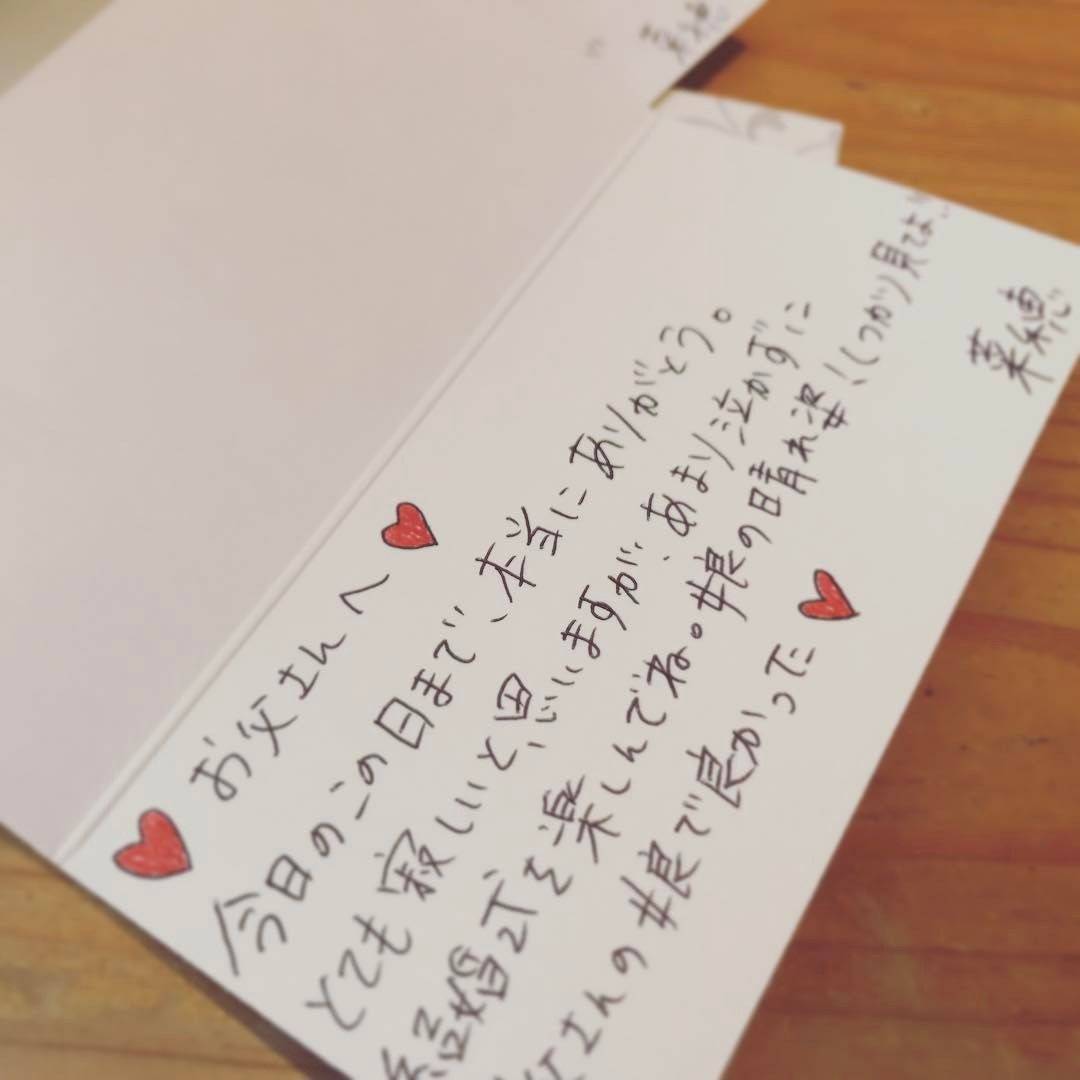 お父さんへ
今日のこの日まで、本当にありがとう。
とても寂しいと思いますが、あまり泛かずに
結婚式を楽しんでね。娘の晴れ姿!しっかり見てよ!!
さんの娘で良かった
菜穂
菜穂